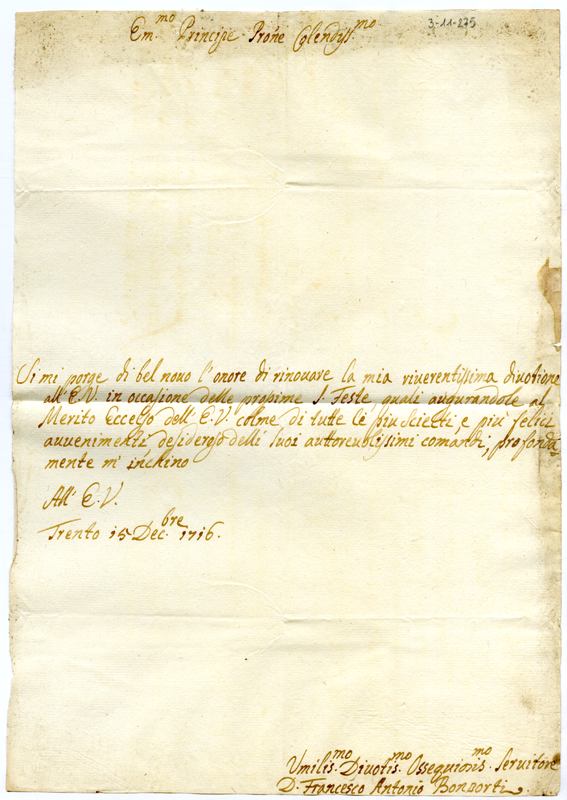 3-11-275
Em.mo Principe Prone Colendiss.mo
Si mi porge di bel novo l'onore di rinovare la mia riverentissima divotione
all'E.V. in occasione delle prossime S. Feste, quali augurandole al
Merito Eccelso dell'E.V. colme di tutte le più scielti, e più felici
avvenimenti desideroso delli suoi auttorevolissimi comandi, profonda-
mente m'inchino
All'E.V.
Trento 15 Dec.bre 1716.
Umilis.mo Divotis.mo Ossequiosis.mo Servitore
D. Francesco Antonio Bonporti